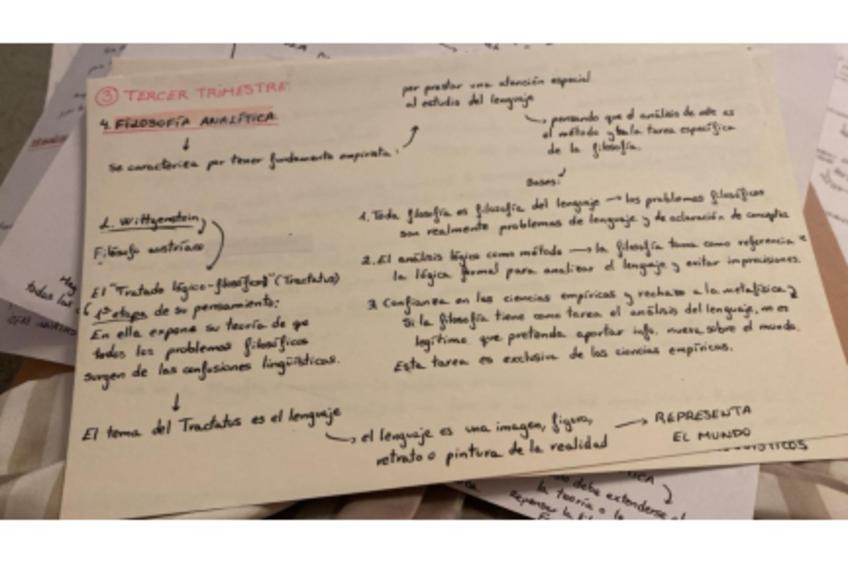 ③ TERCER TRIMESTRE
4. FILOSOFÍA ANALÍTICA
↓
Se caracteriza por tener fundamento empirista.
por prestar una atención especial
al estudio del lenguaje
pensando que el análisis de este es
el método y la tarea específica
de la filosofía.
Bases:
1. Toda filosofía es filosofía del lenguaje → los problemas filosóficos
son realmente problemas de lenguaje y de aclaración de conceptos
2. El análisis lógico como método → la filosofía toma como referencia
la lógica formal para analizar el lenguaje y evitar imprecisiones.
3. Confianza en las ciencias empíricas y rechazo a la metafísica
Si la filosofía tiene como tarea el análisis del lenguaje, no es
legítimo que pretenda aportar info. nueva sobre el mundo.
Esta tarea es exclusiva de las ciencias empíricas.
Wittgenstein
Filósofo austríaco
El "Tratado lógico-filosófico" (Tractatus)
1ª etapa de su pensamiento:
En ella expone su teoría de que
todos los problemas filosóficos
surgen de las confusiones lingüísticas.
↓
El tema del Tractatus es el lenguaje
→ el lenguaje es una imagen, figura,
retrato o pintura de la realidad
→ REPRESENTA
EL MUNDO
todas las
debe extenderse
la teoría o